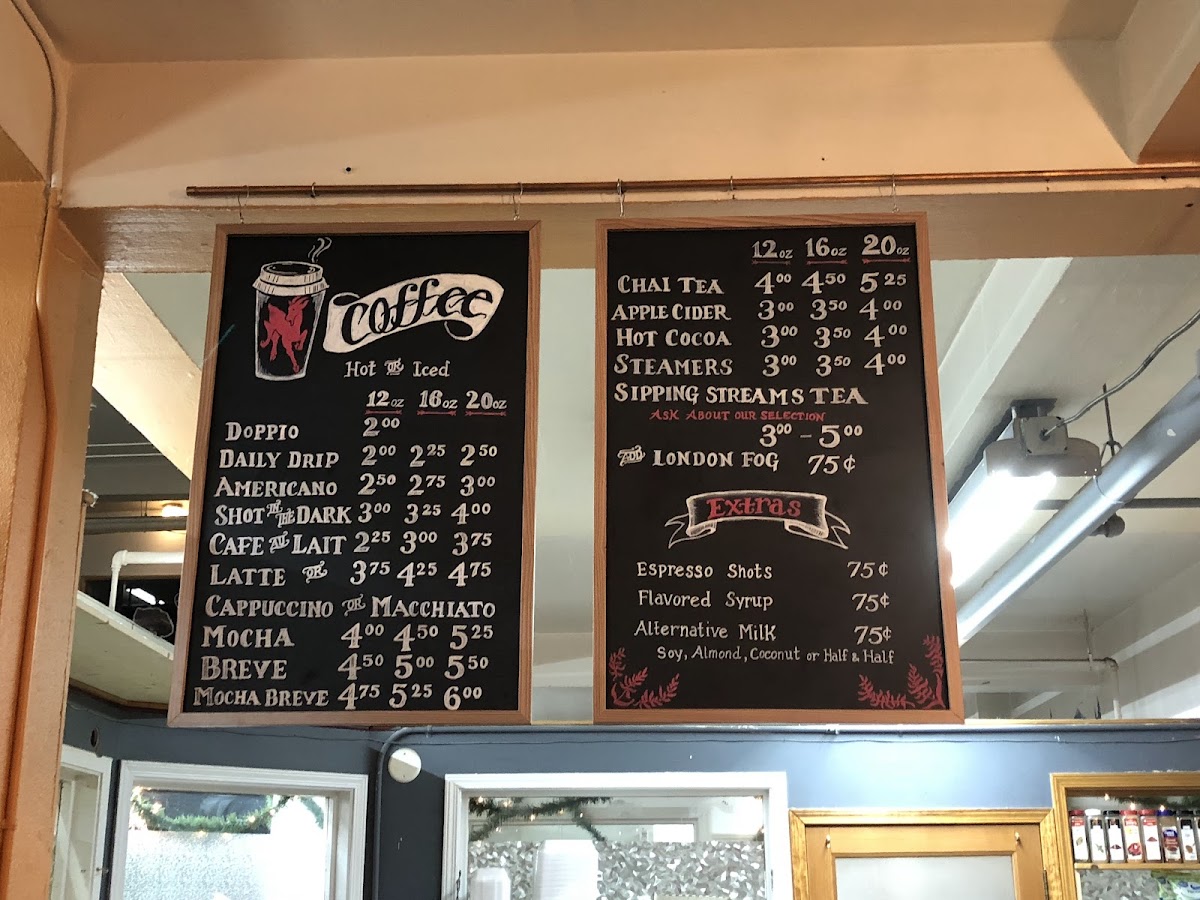 Coffee
Hot OR Iced
12oz 16oz 20oz
DOPPIO 2.00
DAILY DRIP 2.00 2.25 2.50
AMERICANO 2.50 2.75 3.00
SHOT IN THE DARK 3.00 3.25 4.00
CAFE AU LAIT 2.25 3.00 3.75
LATTE OR 3.75 4.25 4.75
CAPPUCCINO OR MACCHIATO
MOCHA 4.00 4.50 5.25
BREVE 4.50 5.00 5.50
MOCHA BREVE 4.75 5.25 6.00
12oz 16oz 20oz
CHAI TEA 4.00 4.50 5.25
APPLE CIDER 3.00 3.50 4.00
HOT COCOA 3.00 3.50 4.00
STEAMERS 3.00 3.50 4.00
SIPPING STREAMS TEA
ASK ABOUT OUR SELECTION
3.00 - 5.00
ADD LONDON FOG 75¢
Extras
Espresso Shots 75¢
Flavored Syrup 75¢
Alternative Milk 75¢
Soy, Almond, Coconut or Half & Half